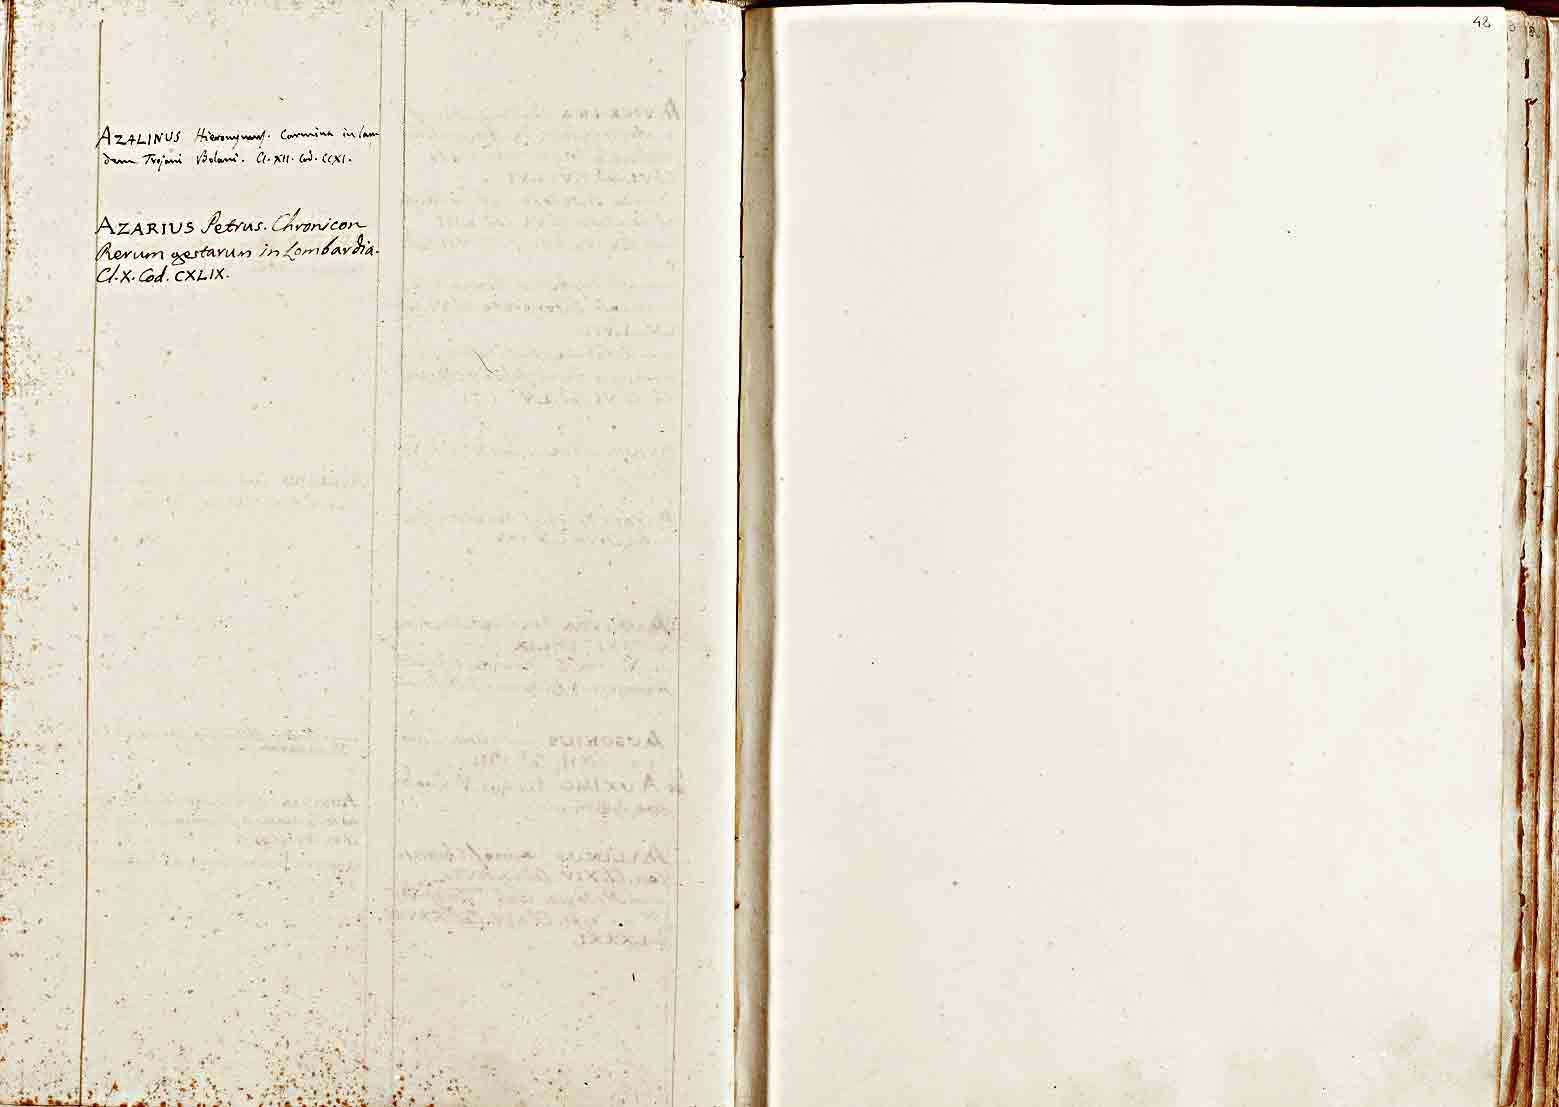 AZALINUS Hieronymus. Carmina in lau-
dem Trojani Bolani. Cl. XII. Cod. CCXI.
AZARIUS Petrus. Chronicon
Rerum gestarum in Lombardia.
Cl. X. Cod. CXLIX.
48